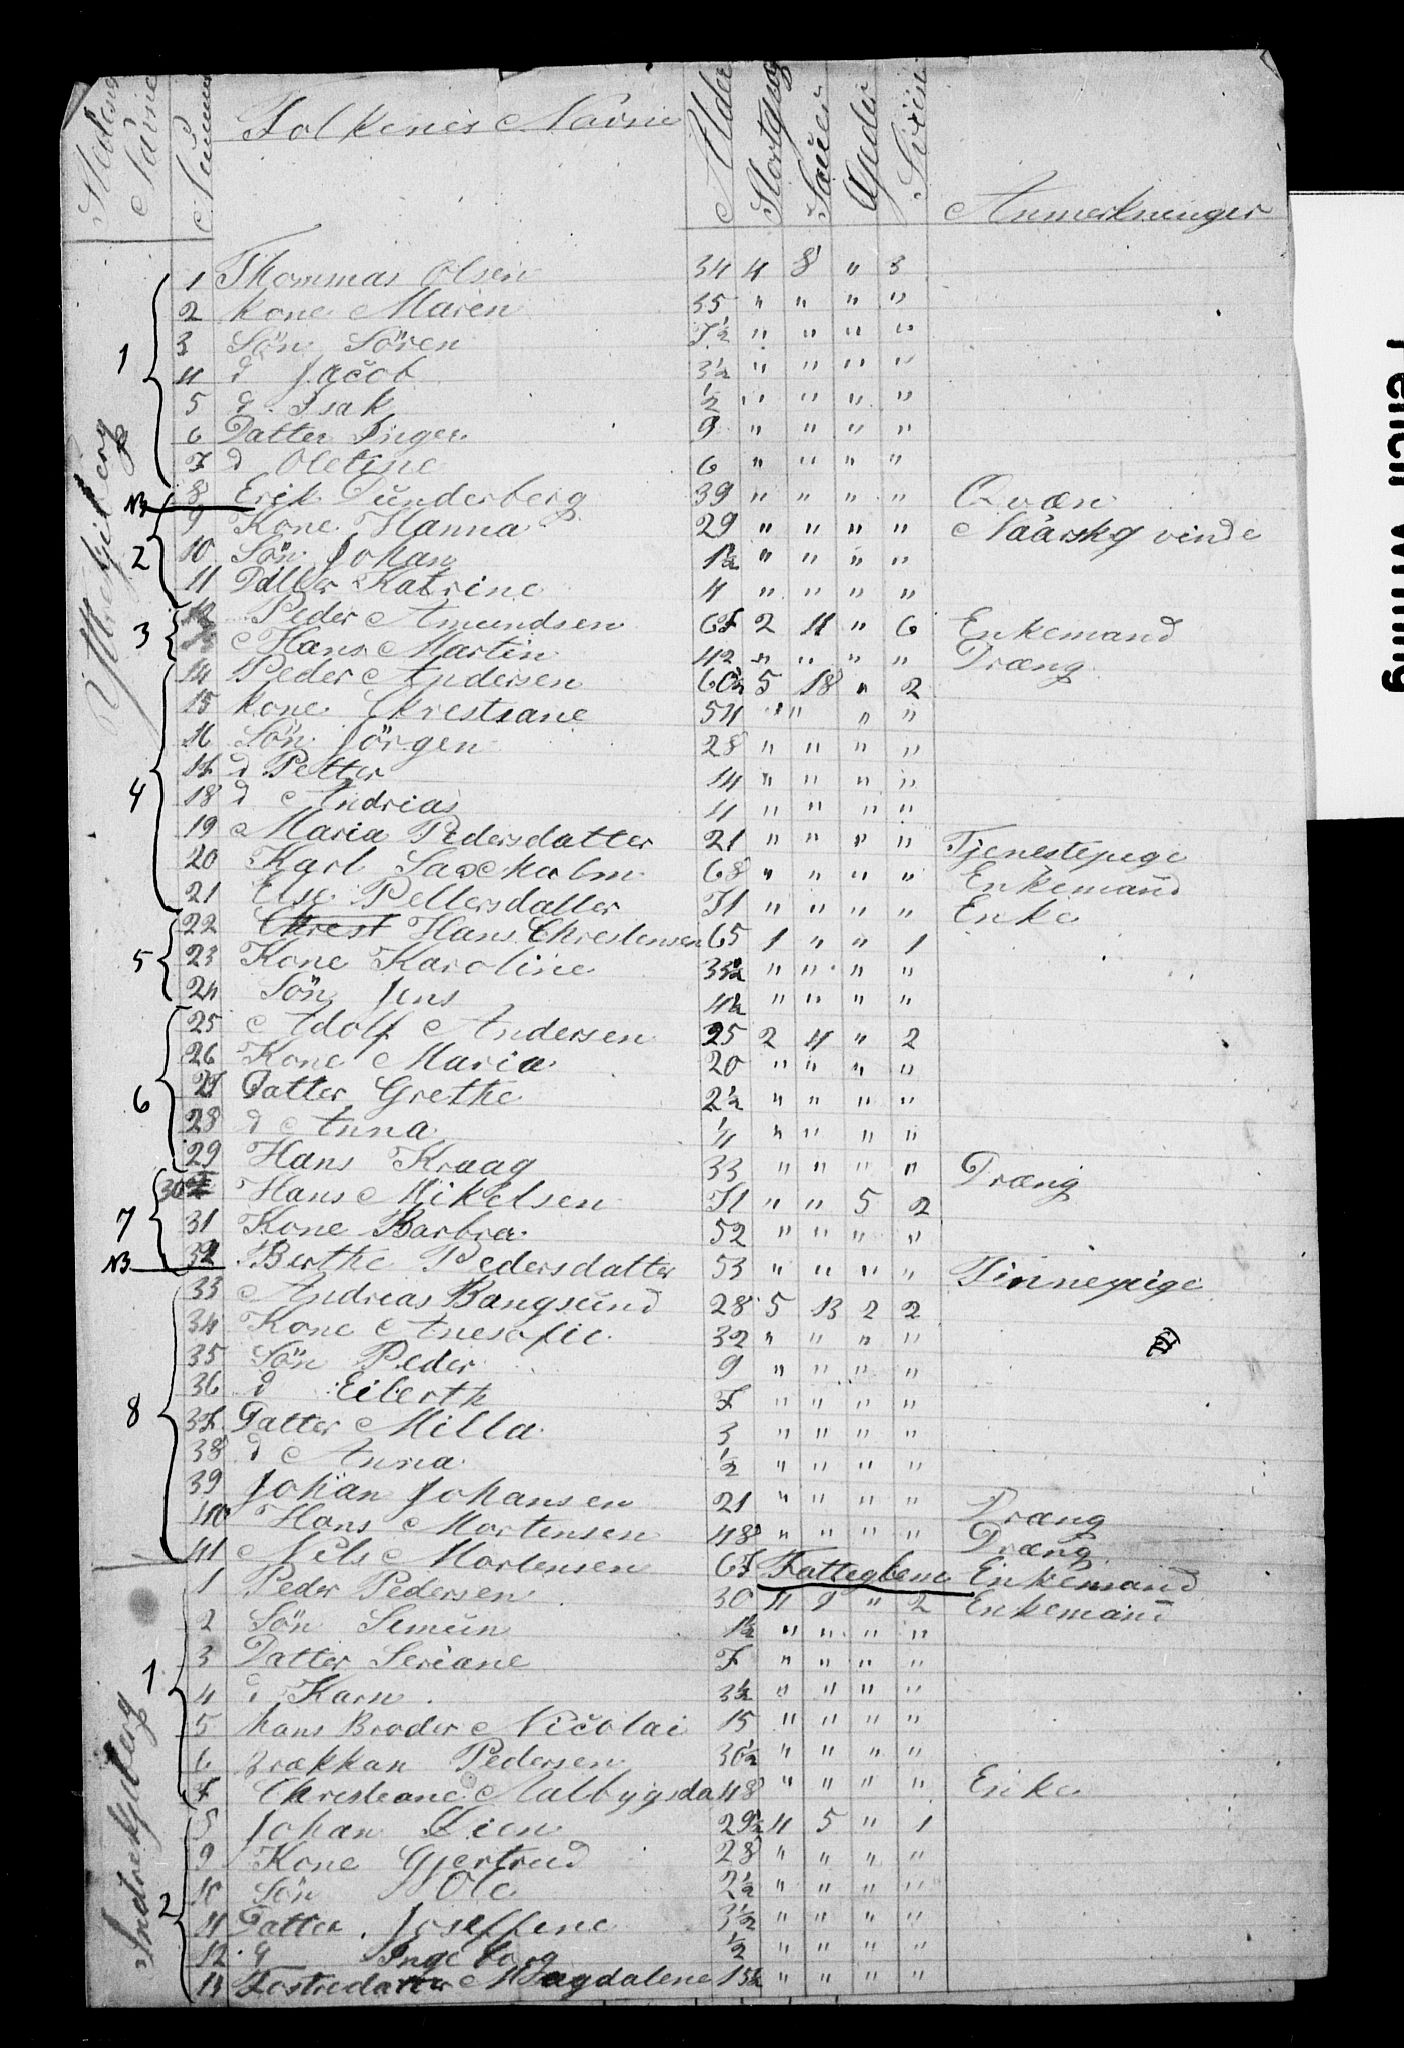 Stedens Navne | Nummer | Folkenes Navne | Alder | Stortqvæg | Sauer | Gjeder | Sviin | Anmerkninger
Yttregjilberg
1
1 Thommas Olsen 34 4 8 " 3
2 Kone Maren 35 " " " "
3 Sön Sören 7½ " " " "
4 d Jacob 3½ " " " "
5 d Isak ½ " " " "
6 Datter Inger 9 " " " "
7 d Oletine 6 " " " "
NB 8 Erik Dunderberg 39 " " " " Qvæn
2
9 Kone Hanna 29 " " " " Naarskqvinde
10 Sön Johan 1½ " " " "
11 Datter Katrine 4 " " " "
3
12 Peder Amundsen 67 2 4 " 6 Enkemand
Hans Martin 42 " " " " Dræng
4
14 Peder Andersen 60½ 5 18 " 2
15 Kone Chrestiane 54 " " " "
16 Sön Jörgen 28 " " " "
17 d Petter 14 " " " "
18 d Andrias 4 " " " "
19 Maria Pedersdatter 21 " " " " Tjenestepige
20 Karl Saxeholm 68 " " " " Enkemand
21 Else Pettersdatter 71 " " " " Enke
5
22 Chrest Hans Chrestensen 65 1 " " 1
23 Kone Karoline 33½ " " " "
24 Sön Jens 4½ " " " "
6
25 Adolf Andersen 25 2 4 " 2
26 Kone Maria 20 " " " "
27 Datter Grethe 2½ " " " "
28 d Anna ¼ " " " "
29 Hans Kraag 33 " " " " Dræng
7
30 Hans Mikelsen 71 " " 5 2
31 Kone Barbra 52 " " " "
NB 32 Berthe Pedersdatter 53 " " " " Tinnepige
8
33 Andreas Bangsund 28 5 13 2 2
34 Kone Anesofie 32 " " " "
35 Sön Peder 9 " " " "
36 d Eiberth 7 " " " "
37 Datter Milla 3 " " " "
38 d Anna ½ " " " "
39 Johan Johansen 21 " " " " Dræng
40 Hans Mortensen 48 " " " " Dræng
41 Nils Mortensen 67 Fattiglem Enkemand
Indregjilberg
1
1 Peder Pedersen 30 4 9 " 2 Enkemand
2 Sön Semun 1½ " " " "
3 Datter Seriane 7 " " " "
4 d Karn 3½ " " " "
5 hans Broder Nicolai 15 " " " "
6 Pedersen 30½ " " " "
7 Chrestiane Malbygsda 48 " " " " Enke
2
8 Johan Lien 29½ 4 5 " 1
9 Kone Gjertrud 28 " " " "
10 Sön Ole 2½ " " " "
11 Datter Joseffene 3½ " " " "
12 d Ingeborg ½ " " " "
13 Fostredatter Magdalene 15½ " " " "
Pencil Writing